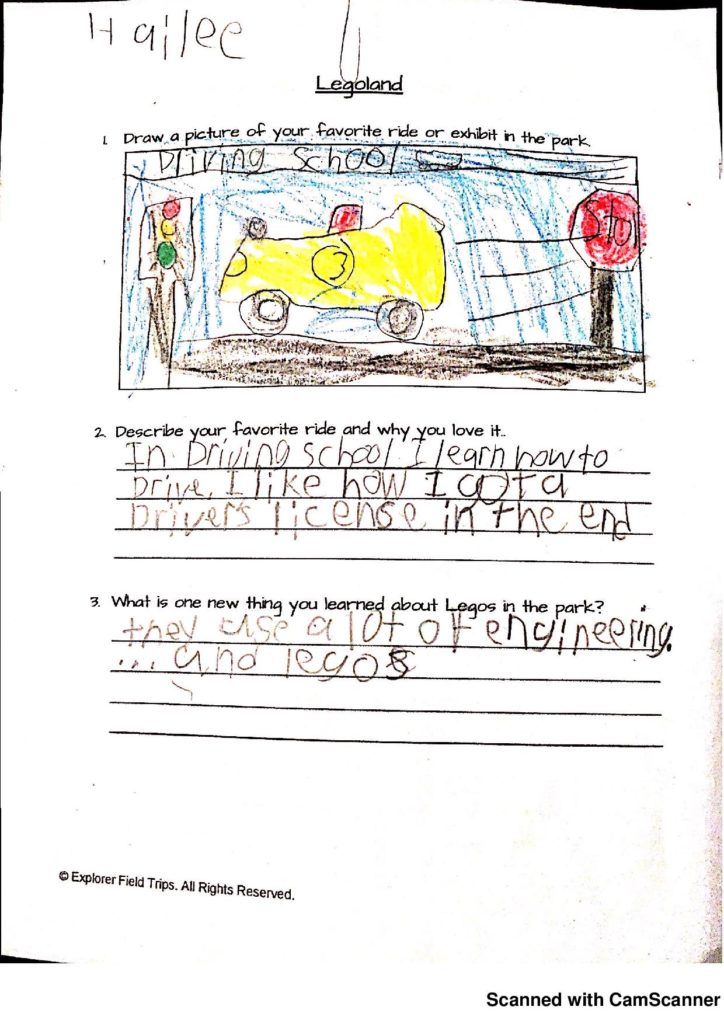 Hailee
Legoland
1. Draw a picture of your favorite ride or exhibit in the park.
Driving School
3
Stop
2. Describe your favorite ride and why you love it..
In Driving school I learn how to
Drive, I like how I got a
Driver's license in the end
3. What is one new thing you learned about Legos in the park?
they use a lot of engineering.
... and legos
© Explorer Field Trips. All Rights Reserved.
Scanned with CamScanner